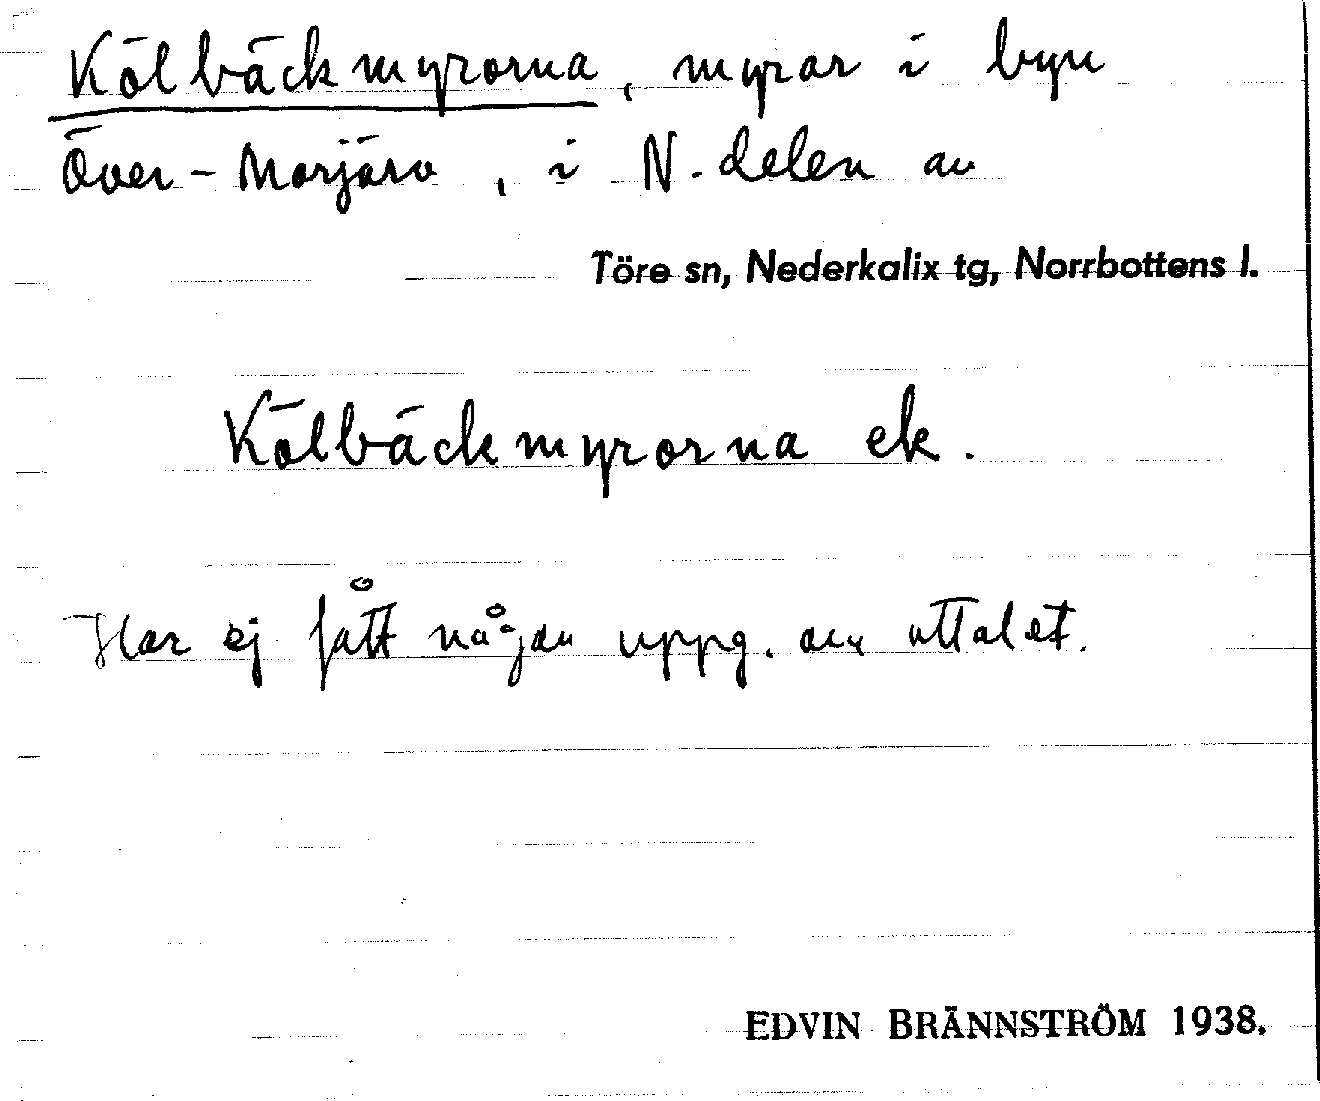 Kölbäckmyrorna, myrar i byn
Över-Morjärv, i N. delen av
Töre sn, Nederkalix tg, Norrbottens l.
Kölbäckmyrorna ek.
Har ej fått någon uppg. om uttalet.
EDVIN BRÄNNSTRÖM 1938.